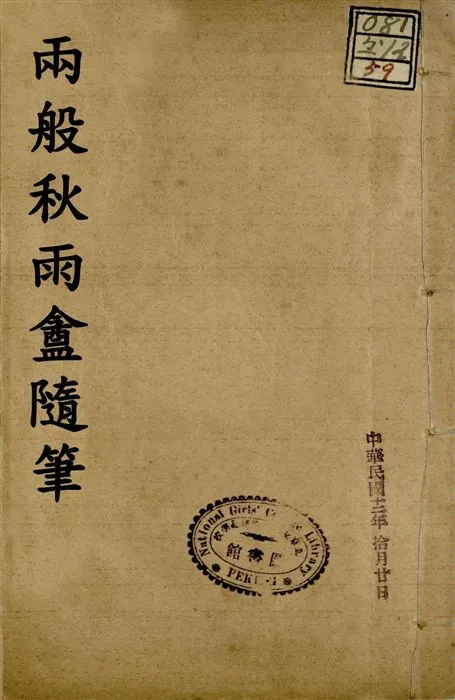 兩般秋雨盦隨筆
081
59
National Girls' Library
圖書館
PEKI
中華民國十二年拾月廿日